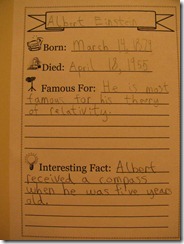 Albert Einstein
Born: March 14, 1879
Died: April 18, 1955
Famous For: He is most
famous for his theory
of relativity.
Interesting Fact: Albert
received a compass
when he was five years
old.